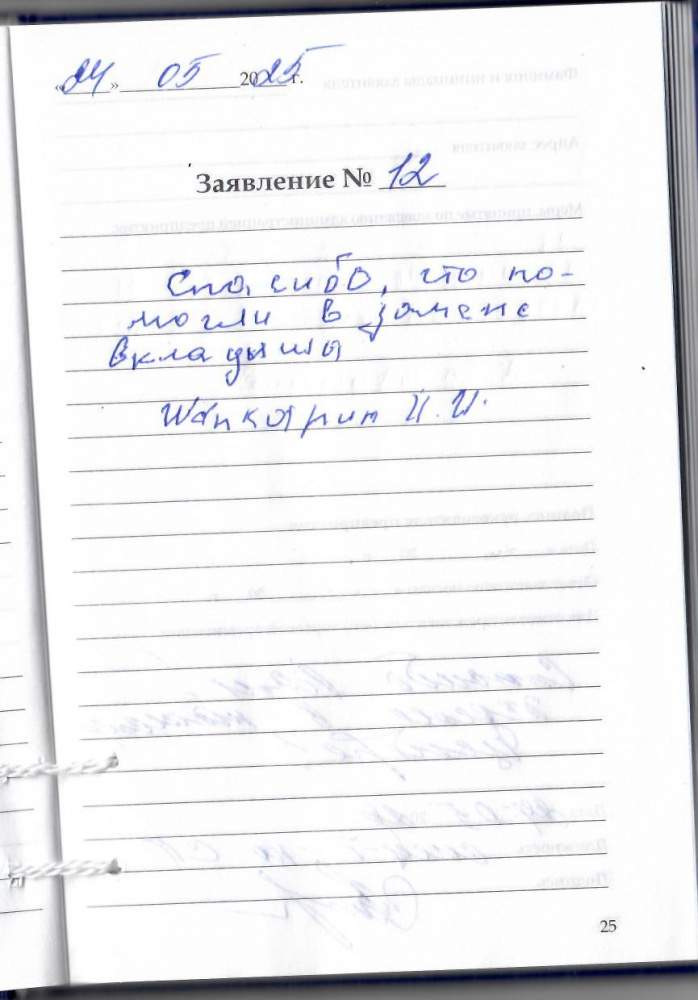 «24» 05 2025 г.
Заявление № 12
Спасибо, что по-
могли в замене
вкладыша
И. И.
25